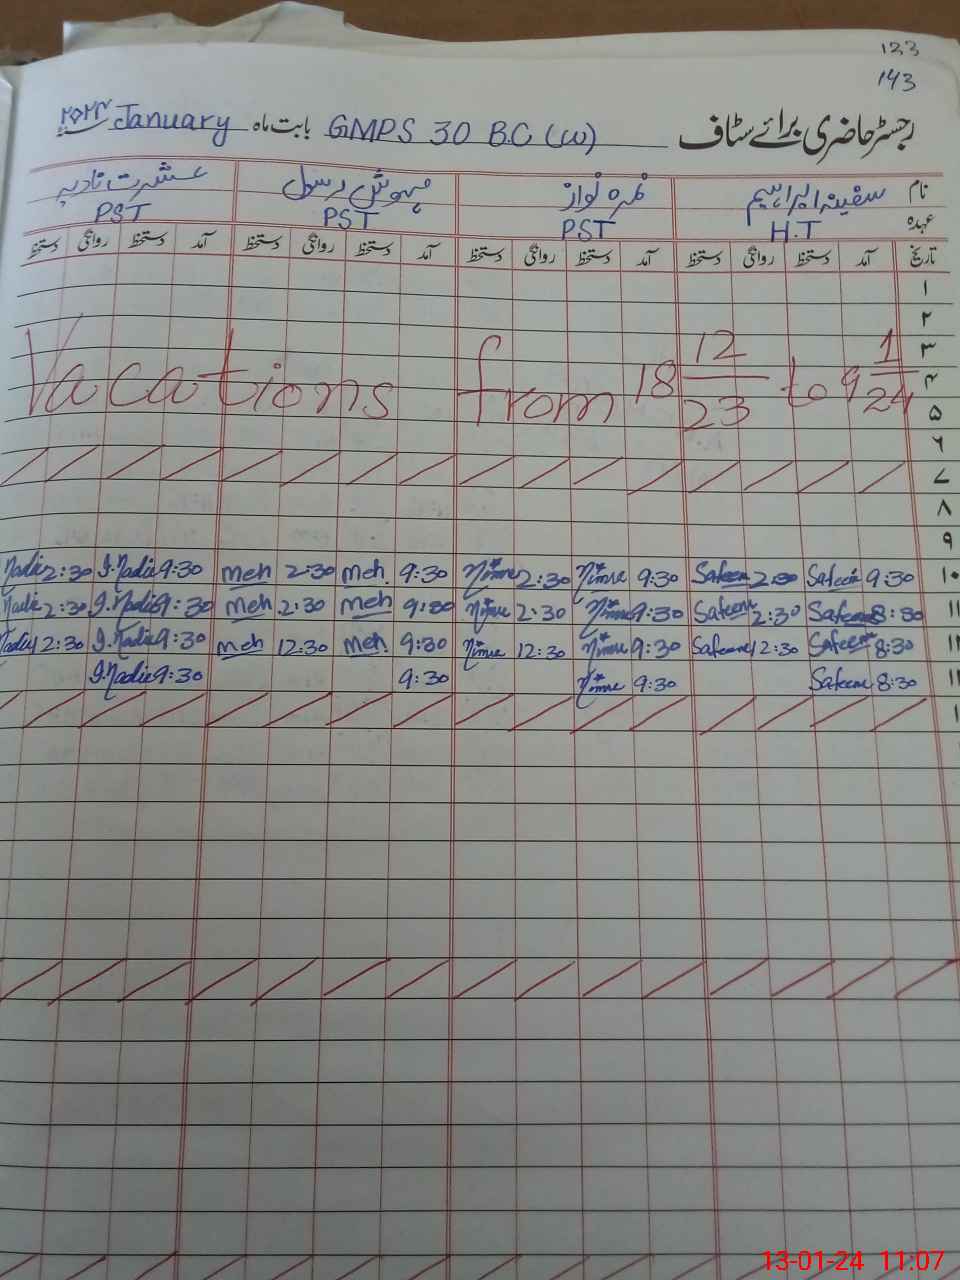 123
143
رجسٹر حاضری برائے سٹاف GMPS 30 B.C (W) بابت ماہ January ۲۰۲۴
نام سفینہ ابراہیم نمرہ نواز مہوش رسول عشرت نادیہ
عہدہ H.T PST PST PST
تاریخ آمد دستخط روانگی دستخط آمد دستخط روانگی دستخط آمد دستخط روانگی دستخط آمد دستخط روانگی دستخط
۱
۲
۳
۴
Vacations from 18 12/23 to 9 1/24
۵
۶
۷
۸
۹
۱۰ 9:30 Safeen 2:30 Safeen 9:30 Nimre 2:30 Nimre 9:30 meh 2:30 meh 9:30 I.Nadie 2:30 Nadie
۱۱ 8:30 Safeen 2:30 Safeen 9:30 Nimre 2:30 Nimre 9:30 meh 2:30 meh 9:30 I.Nadie 2:30 Nadie
8:30 Safeen 12:30 Safeene 9:30 Nimre 12:30 Nimre 9:30 meh 12:30 meh 9:30 I.Nadie 12:30 Nadie
8:30 Safeene 9:30 Nimre 9:30 9:30 I.Nadie
13-01-24 11:07